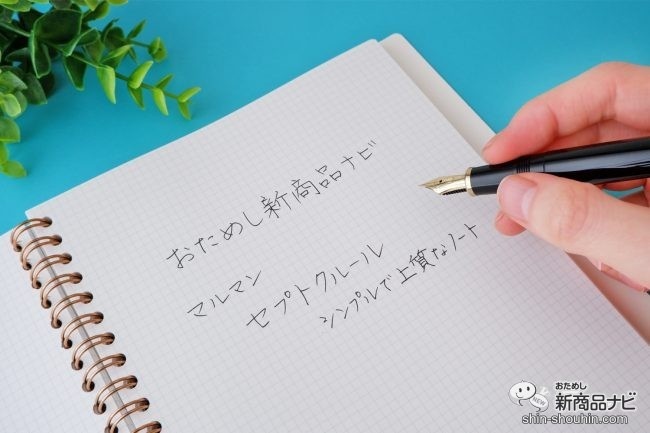 おためし新商品ナビ
マルマン
セプトクルール
シンプルで上質なノート
おためし
新商品ナビ
NEW
shin-shouhin.com